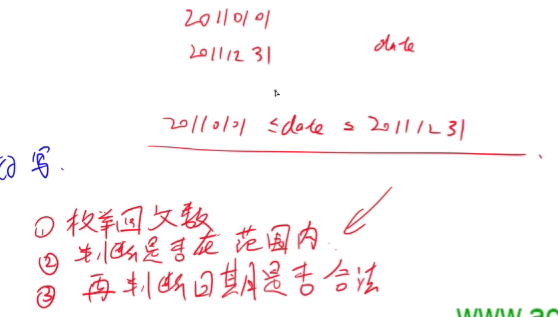 20110101
20111231
date
20110101 ≤ date ≤ 20111231
写.
① 枚举回文数
② 判断是否在范围内.
③ 再判断日期是否合法